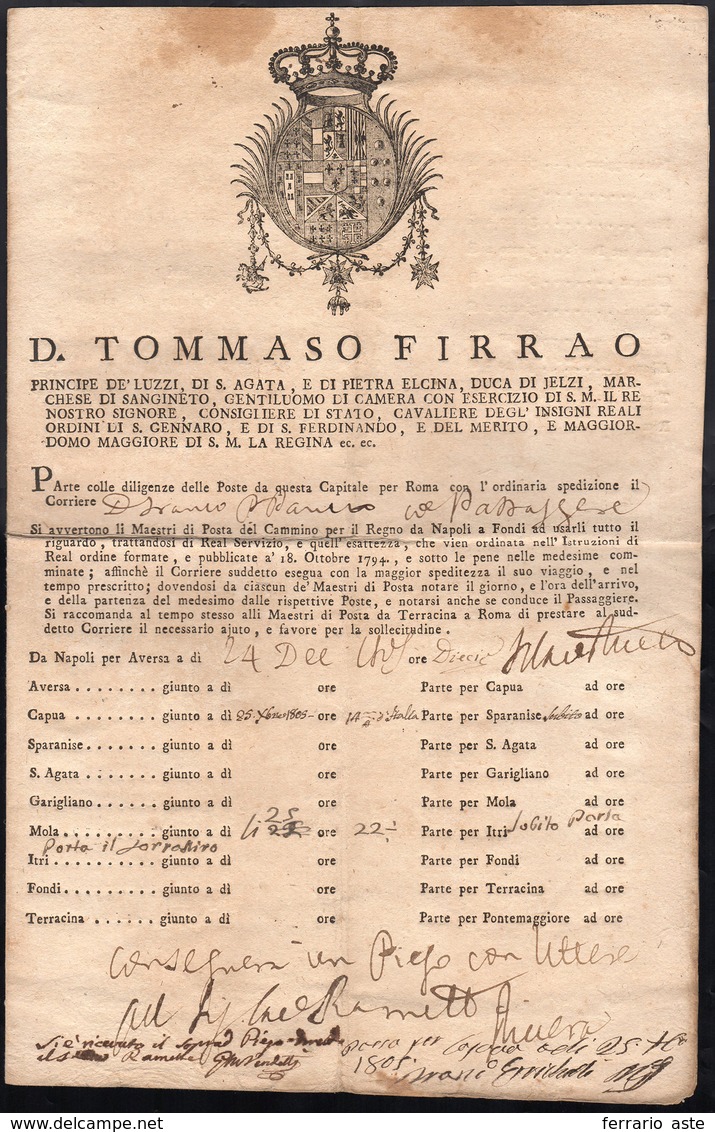 D. TOMMASO FIRRAO
PRINCIPE DE' LUZZI, DI S. AGATA, E DI PIETRA ELCINA, DUCA DI JELZI, MAR-
CHESE DI SANGINETO, GENTILUOMO DI CAMERA CON ESERCIZIO DI S. M. IL RE
NOSTRO SIGNORE, CONSIGLIERE DI STATO, CAVALIERE DEGL' INSIGNI REALI
ORDINI DI S. GENNARO, E DI S. FERDINANDO, E DEL MERITO, E MAGGIOR-
DOMO MAGGIORE DI S. M. LA REGINA ec. ec.
PArte colle diligenze delle Poste da questa Capitale per Roma con l' ordinaria spedizione il
Corriere
Si avvertono li Maestri di Posta del Cammino per il Regno da Napoli a Fondi ad usarli tutto il
riguardo, trattandosi di Real Servizio, e quell' esattezza, che vien ordinata nell' Istruzioni di
Real ordine formate, e pubblicate a' 18. Ottobre 1794., e sotto le pene nelle medesime com-
minate; affinchè il Corriere suddetto esegua con la maggior speditezza il suo viaggio, e nel
tempo prescritto; dovendosi da ciascun de' Maestri di Posta notare il giorno, e l'ora dell'arrivo,
e della partenza del medesimo dalle rispettive Poste, e notarsi anche se conduce il Passaggiere.
Si raccomanda al tempo stesso alli Maestri di Posta da Terracina a Roma di prestare al sud-
detto Corriere il necessario ajuto, e favore per la sollecitudine.
Da Napoli per Aversa a dì 24 Dec ore
Aversa ........ giunto a dì ore Parte per Capua ad ore
Capua ........ giunto a dì 25 Xbre 1805 ore 14 d'Italia Parte per Sparanise subito ad ore
Sparanise ...... giunto a dì ore Parte per S. Agata ad ore
S. Agata ....... giunto a dì ore Parte per Garigliano ad ore
Garigliano ...... giunto a dì ore Parte per Mola ad ore
Mola ......... giunto a dì li 25 ore 22 Parte per Itri subito ad ore
Porta il
Itri ......... giunto a dì ore Parte per Fondi ad ore
Fondi ........ giunto a dì ore Parte per Terracina ad ore
Terracina ...... giunto a dì ore Parte per Pontemaggiore ad ore
consegnerà un Piego con lettere
Si è ricevuto il Piego
Passa per Capua a dì 25 Xbre
1805
ferrario aste